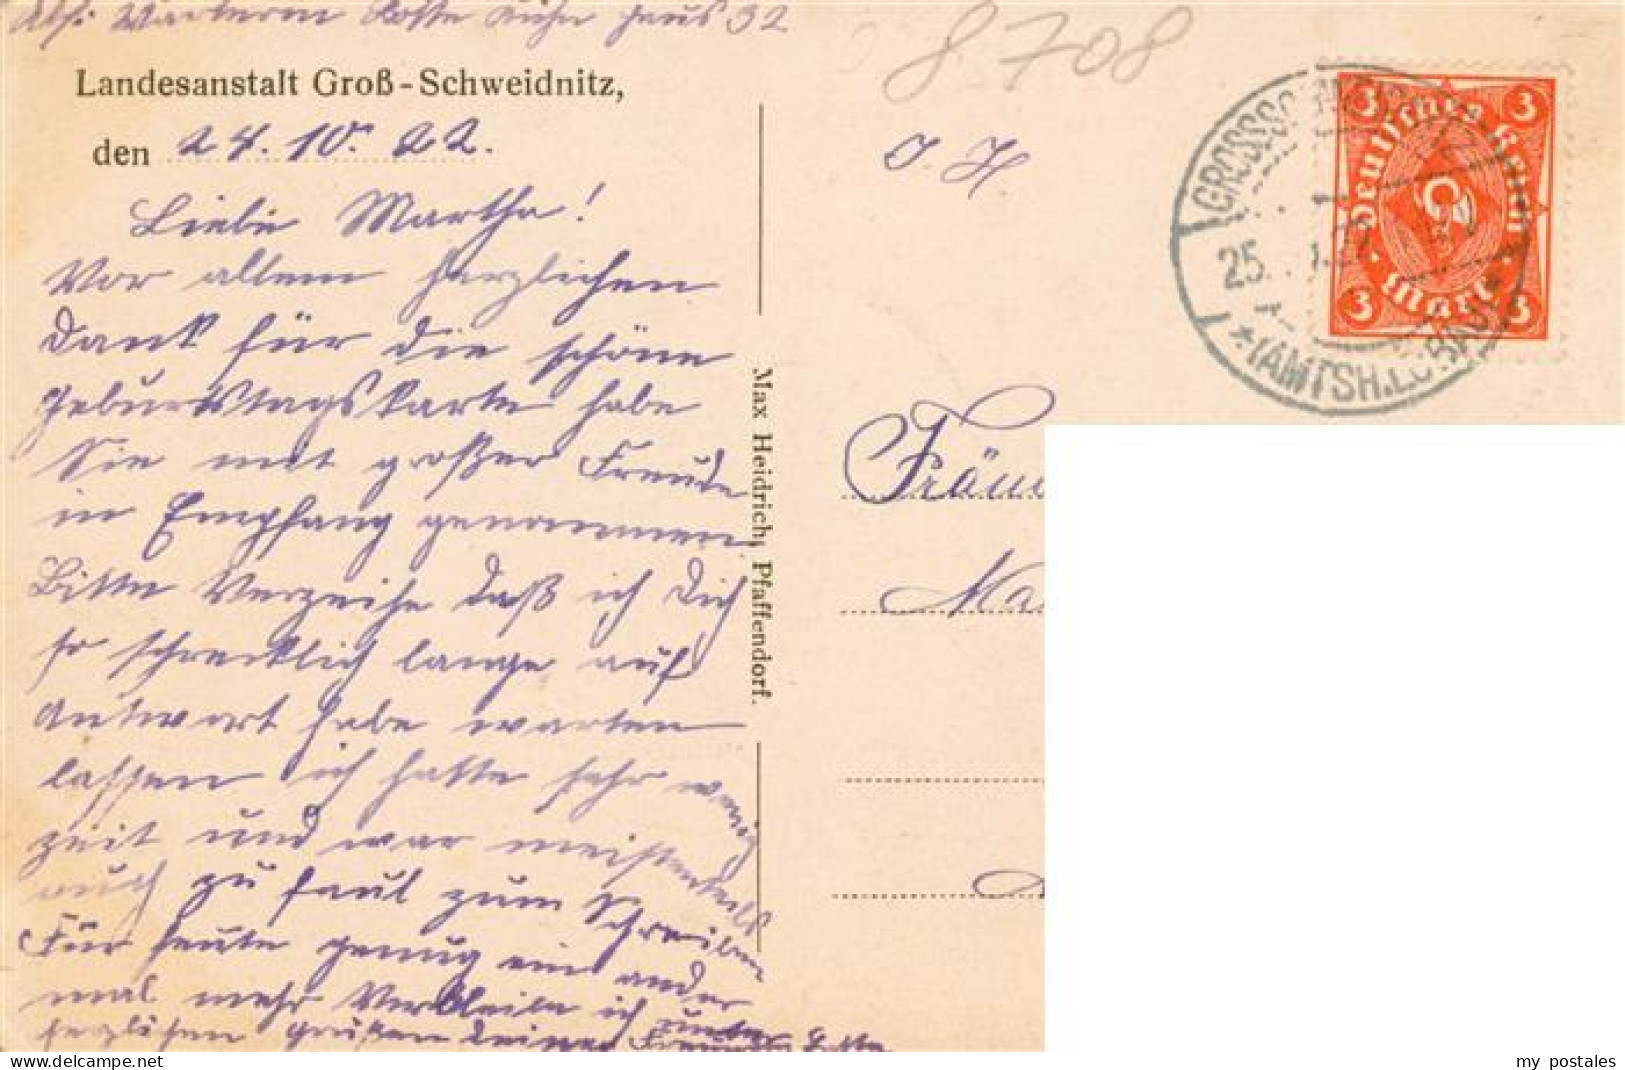 Abs. Wärterin Lotte Kühn Haus 32
Landesanstalt Groß-Schweidnitz,
den 24. 10. 22.
Liebe Martha!
Vor allem herzlichen
Dank für die schöne
Geburtstagskarte habe
Sie mit großer Freude
in Empfang genommen.
Bitte Verzeihe daß ich Dich
so schrecklich lange auf
Antwort habe warten
lassen ich hatte sehr wenig
Zeit und war meistenteils
auch zu faul zum Schreiben
Für heute genug ein ander
mal mehr Verbleibe ich unter
herzlichen Grüßen Deiner Freundin Lotte
Max Heidrich, Pfaffendorf.
8.708
GROSSSCH
25. .22
* (AMTSH.LÖBAU) *
3 3
Deutsches Reich
3 Mark 3
Fräul
Ma
my postales